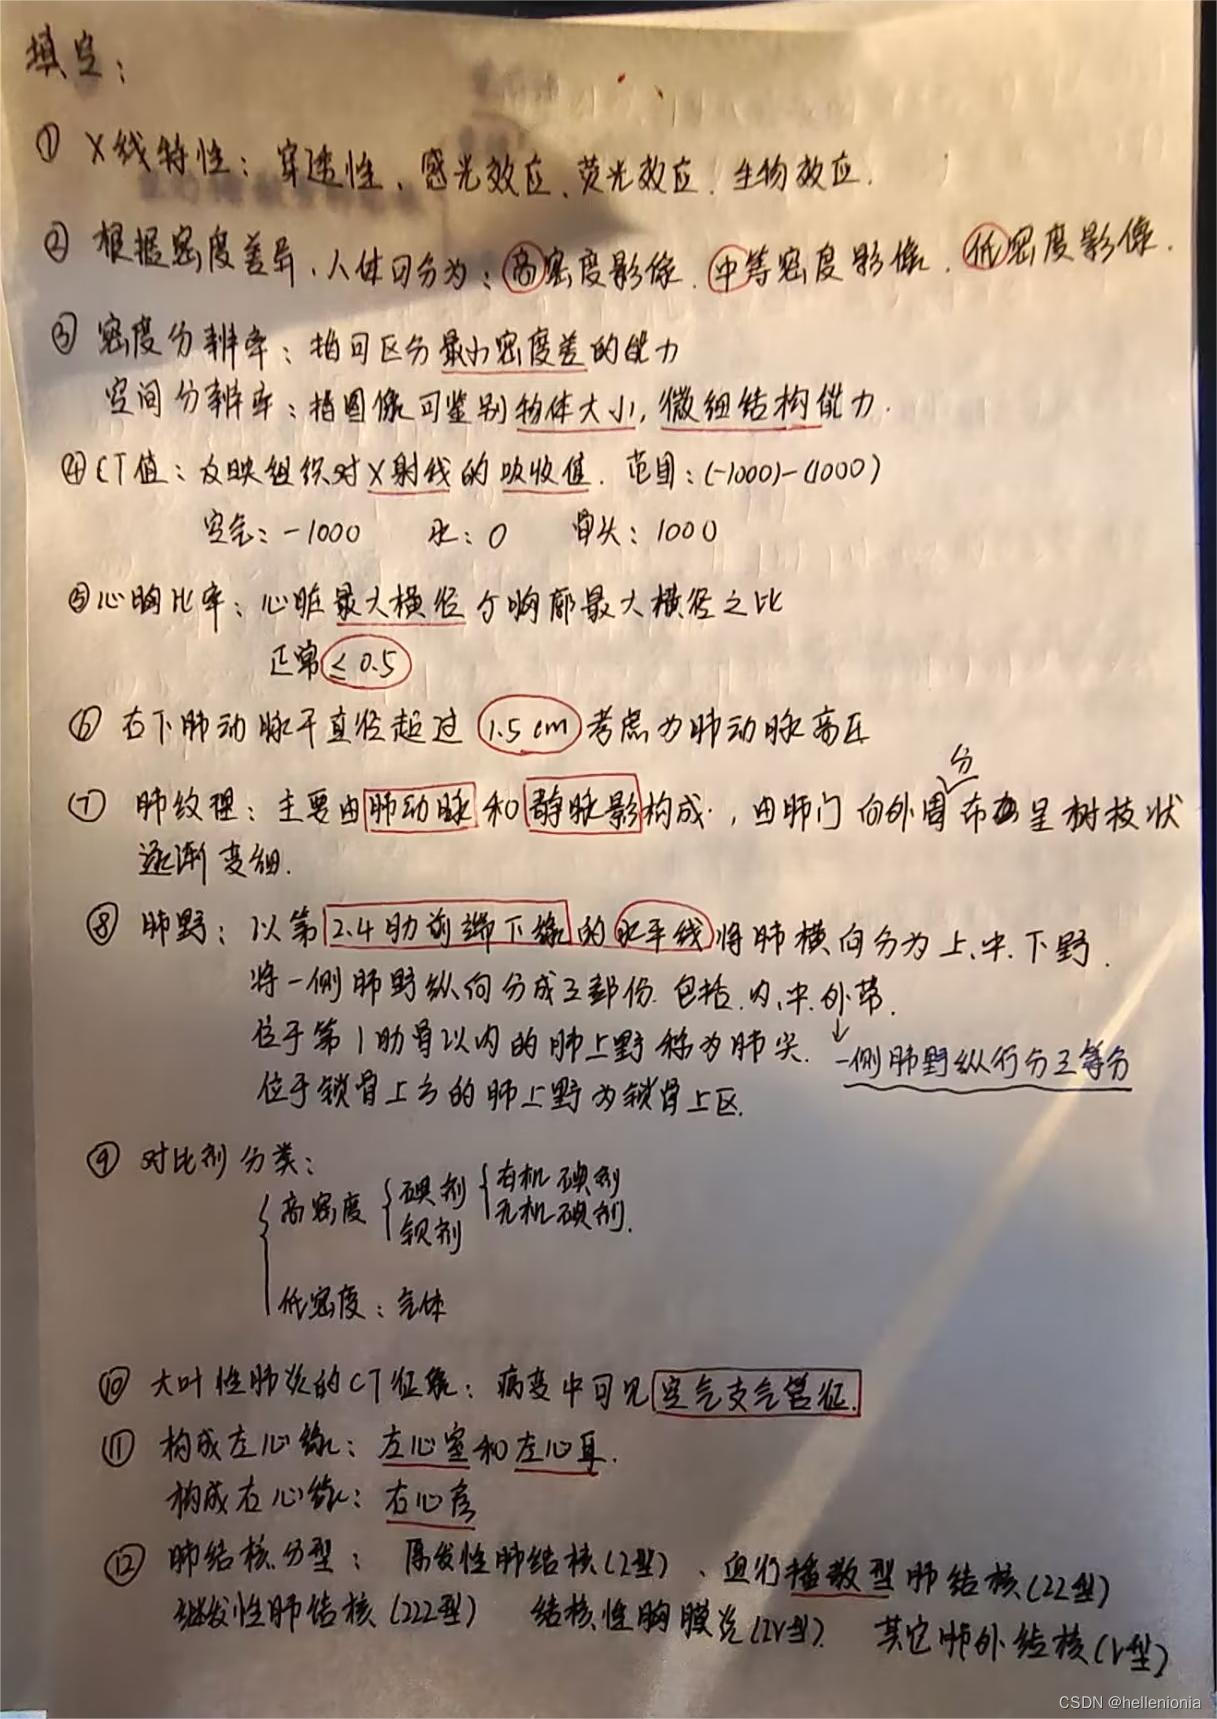 填空：
① X线特性：穿透性、感光效应、荧光效应、生物效应.
② 根据密度差异，人体可分为：高密度影像、中等密度影像、低密度影像.
③ 密度分辨率：指可区分最小密度差的能力
空间分辨率：指图像可鉴别物体大小，微细结构能力.
④ CT值：反映组织对X射线的吸收值. 范围：(-1000)-(1000)
空气：-1000 水：0 骨头：1000
⑤ 心胸比率：心脏最大横径与胸廓最大横径之比
正常≤0.5
⑥ 右下肺动脉干直径超过1.5cm考虑为肺动脉高压
分
⑦ 肺纹理：主要由肺动脉和静脉影构成，由肺门向外周布呈树枝状
逐渐变细.
⑧ 肺野：以第2.4肋前端下缘的水平线将肺横向分为上、中、下野.
将一侧肺野纵向分成三部份.包括.内、中.外带.
位于第1肋骨以内的肺上野称为肺尖. ↓一侧肺野纵行分三等分
位于锁骨上方的肺上野为锁骨上区.
⑨ 对比剂分类：
高密度 碘剂 有机碘剂
钡剂 无机碘剂.
低密度：气体
⑩ 大叶性肺炎的CT征象：病变中可见空气支气管征.
⑪ 构成左心缘：左心室和左心耳.
构成右心缘：右心房
⑫ 肺结核分型：原发性肺结核(I型)、血行播散型肺结核(II型)
继发性肺结核(III型) 结核性胸膜炎(IV型). 其它肺外结核(V型)
CSDN @hellenionia